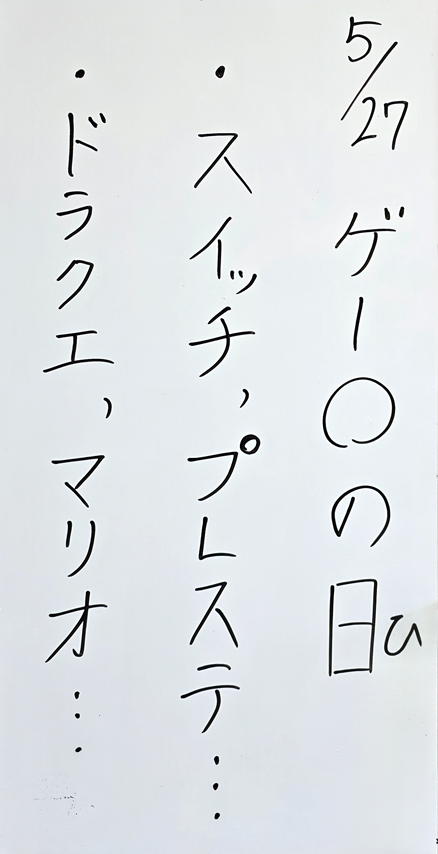 5/27 ゲー〇の日ひ
・スイッチ，プレステ…
・ドラクエ，マリオ…